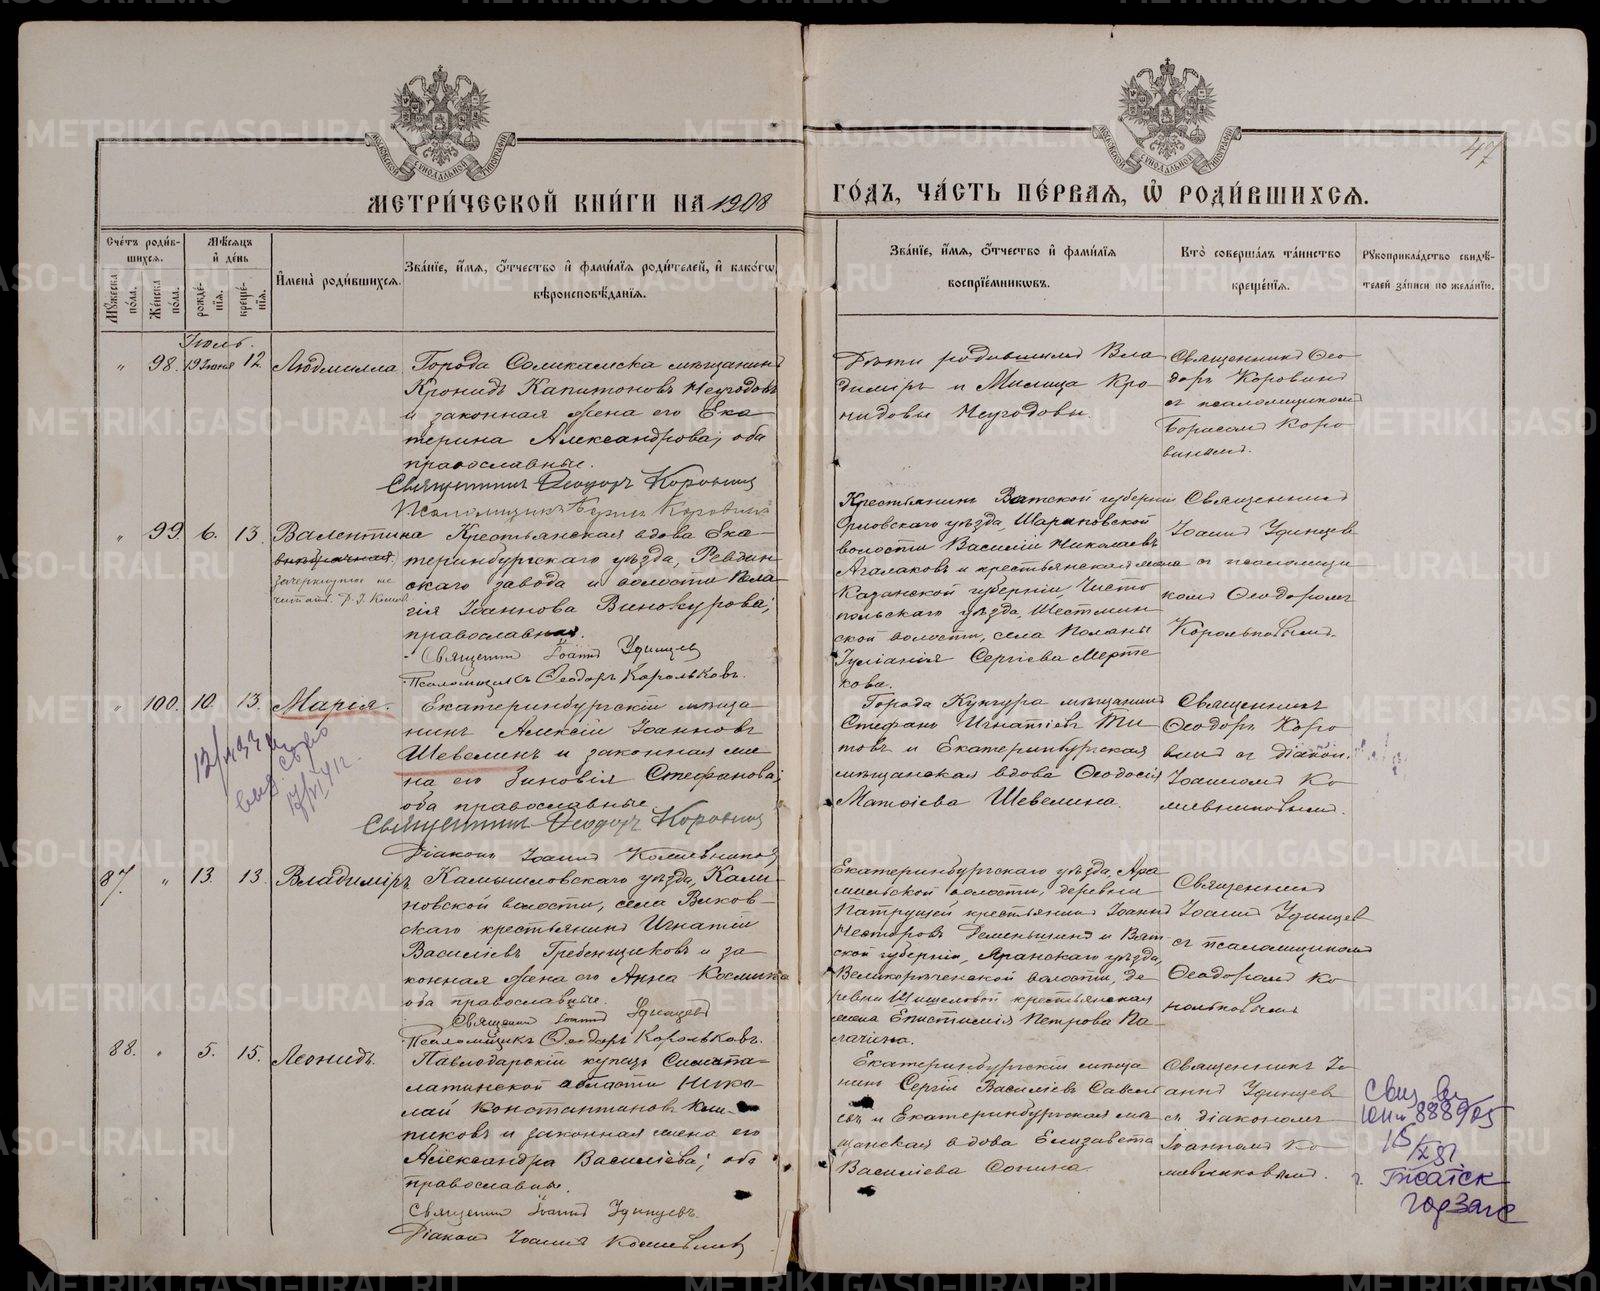 47
МЕТРИ́ЧЕСКОЙ КНИ́ГИ НА 1908
ГО́ДЪ, ЧА́СТЬ ПЕ́РВАѦ, Ѿ РОДИ́ВШИХСѦ.
Сче́тъ роди́в-
шихсѧ.
Мѹжеска по́ла.
Же́нска по́ла.
Мѣ́сѧцъ
и҆ де́нь
рожде́-
нїѧ.
креще́-
нїѧ.
И҆мена̀ роди́вшихсѧ.
Зва́нїе, и҆́мѧ, ѻ҆́тчество и҆ фами́лїѧ роди́телей, и҆ како́гѡ
вѣроисповѣ́данїѧ.
Зва́нїе, и҆́мѧ, ѻ҆́тчество и҆ фами́лїѧ
воспрїе́мникѡвъ.
Кто̀ соверша́лъ та́инство
креще́нїѧ.
Рѹкоприкла́дство свидѣ́-
телей за́писи по жела́нїю.
Іюль.
" 98. 19 Іюня 12. Людмилла
Города Соликамска мѣщанинъ
Кронидъ Капитоновъ Неугодовъ
и законная жена его Ека-
терина Александрова; оба
православные.
Священникъ Ѳеодоръ Коровинъ
Псаломщикъ Борисъ Коровинъ
Дѣти родившимъ Вла-
димиръ и Милица Кро-
нидовы Неугодовы.
Священникъ Ѳео-
доръ Коровинъ
съ псаломщикомъ
Борисомъ Коро-
винымъ.
" 99. 6. 13. Валентина
внѣбрачная
зачеркнутое не
читать.
Крестьянская вдова Ека-
теринбургскаго уѣзда, Ревдин-
скаго завода и волости Пела-
гія Іоаннова Винокурова;
православная.
Священникъ Іоаннъ Удинцевъ
Псаломщикъ Ѳеодоръ Корольковъ.
Крестьянинъ Вятской губерніи
Орловскаго уѣзда, Шараповской
волости Василій Николаевъ
Агалаковъ и крестьянская жена
Казанской губерніи, Чисто-
польскаго уѣзда,
ской волости, села
Іуліанія Сергіева Мерте-
кова.
Священникъ
Іоаннъ Удинцевъ
съ псаломщи-
комъ Ѳеодоромъ
Корольковымъ.
" 100. 10. 13. Марія.
Екатеринбургскій мѣща-
нинъ Алексій Іоанновъ
Шевелинъ и законная же-
на его Зиновія Стефанова;
оба православные.
Священникъ Ѳеодоръ Коровинъ
Діаконъ Іоаннъ Кожевниковъ
Города Кунгура мѣщанинъ
Стефанъ Игнатіевъ Ти-
товъ и Екатеринбургская
мѣщанская вдова Ѳеодосія
Матѳіева Шевелина.
Священникъ
Ѳеодоръ Коро-
винъ съ діакон.
Іоанномъ Ко-
жевниковымъ.
87. " 13. 13. Владиміръ
Камышловскаго уѣзда, Кали-
новской волости, села
скаго крестьянинъ Игнатій
Василіевъ Гребенщиковъ и за-
конная жена его Анна Космина
оба православные.
Священникъ Іоаннъ Удинцевъ
Псаломщикъ Ѳеодоръ Корольковъ.
Екатеринбургскаго уѣзда, Ара-
мильской волости, деревни
Патрушей крестьянинъ Іоаннъ
Несторовъ Деменьшинъ и Вят-
ской губерніи, Яранскаго уѣзда,
Великорѣченской волости, де-
ревни крестьянская
жена Епистимія Петрова Па-
лачина.
Священникъ
Іоаннъ Удинцевъ
съ псаломщикомъ
Ѳеодоромъ Ко-
рольковымъ
88. " 5. 15. Леонидъ.
Павлодарскій купецъ Семипа-
латинской области Нико-
лай Константиновъ
и законная жена его
Александра Василіева; оба
православные.
Священникъ Іоаннъ Удинцевъ.
Діаконъ Іоаннъ Кожевниковъ
Екатеринбургскій мѣща-
нинъ Сергій Василіевъ Савель-
евъ и Екатеринбургская мѣ-
щанская вдова Елизавета
Василіева Сонина.
Священникъ Іо-
аннъ Удинцевъ
съ діакономъ
Іоанномъ Ко-
жевниковымъ.